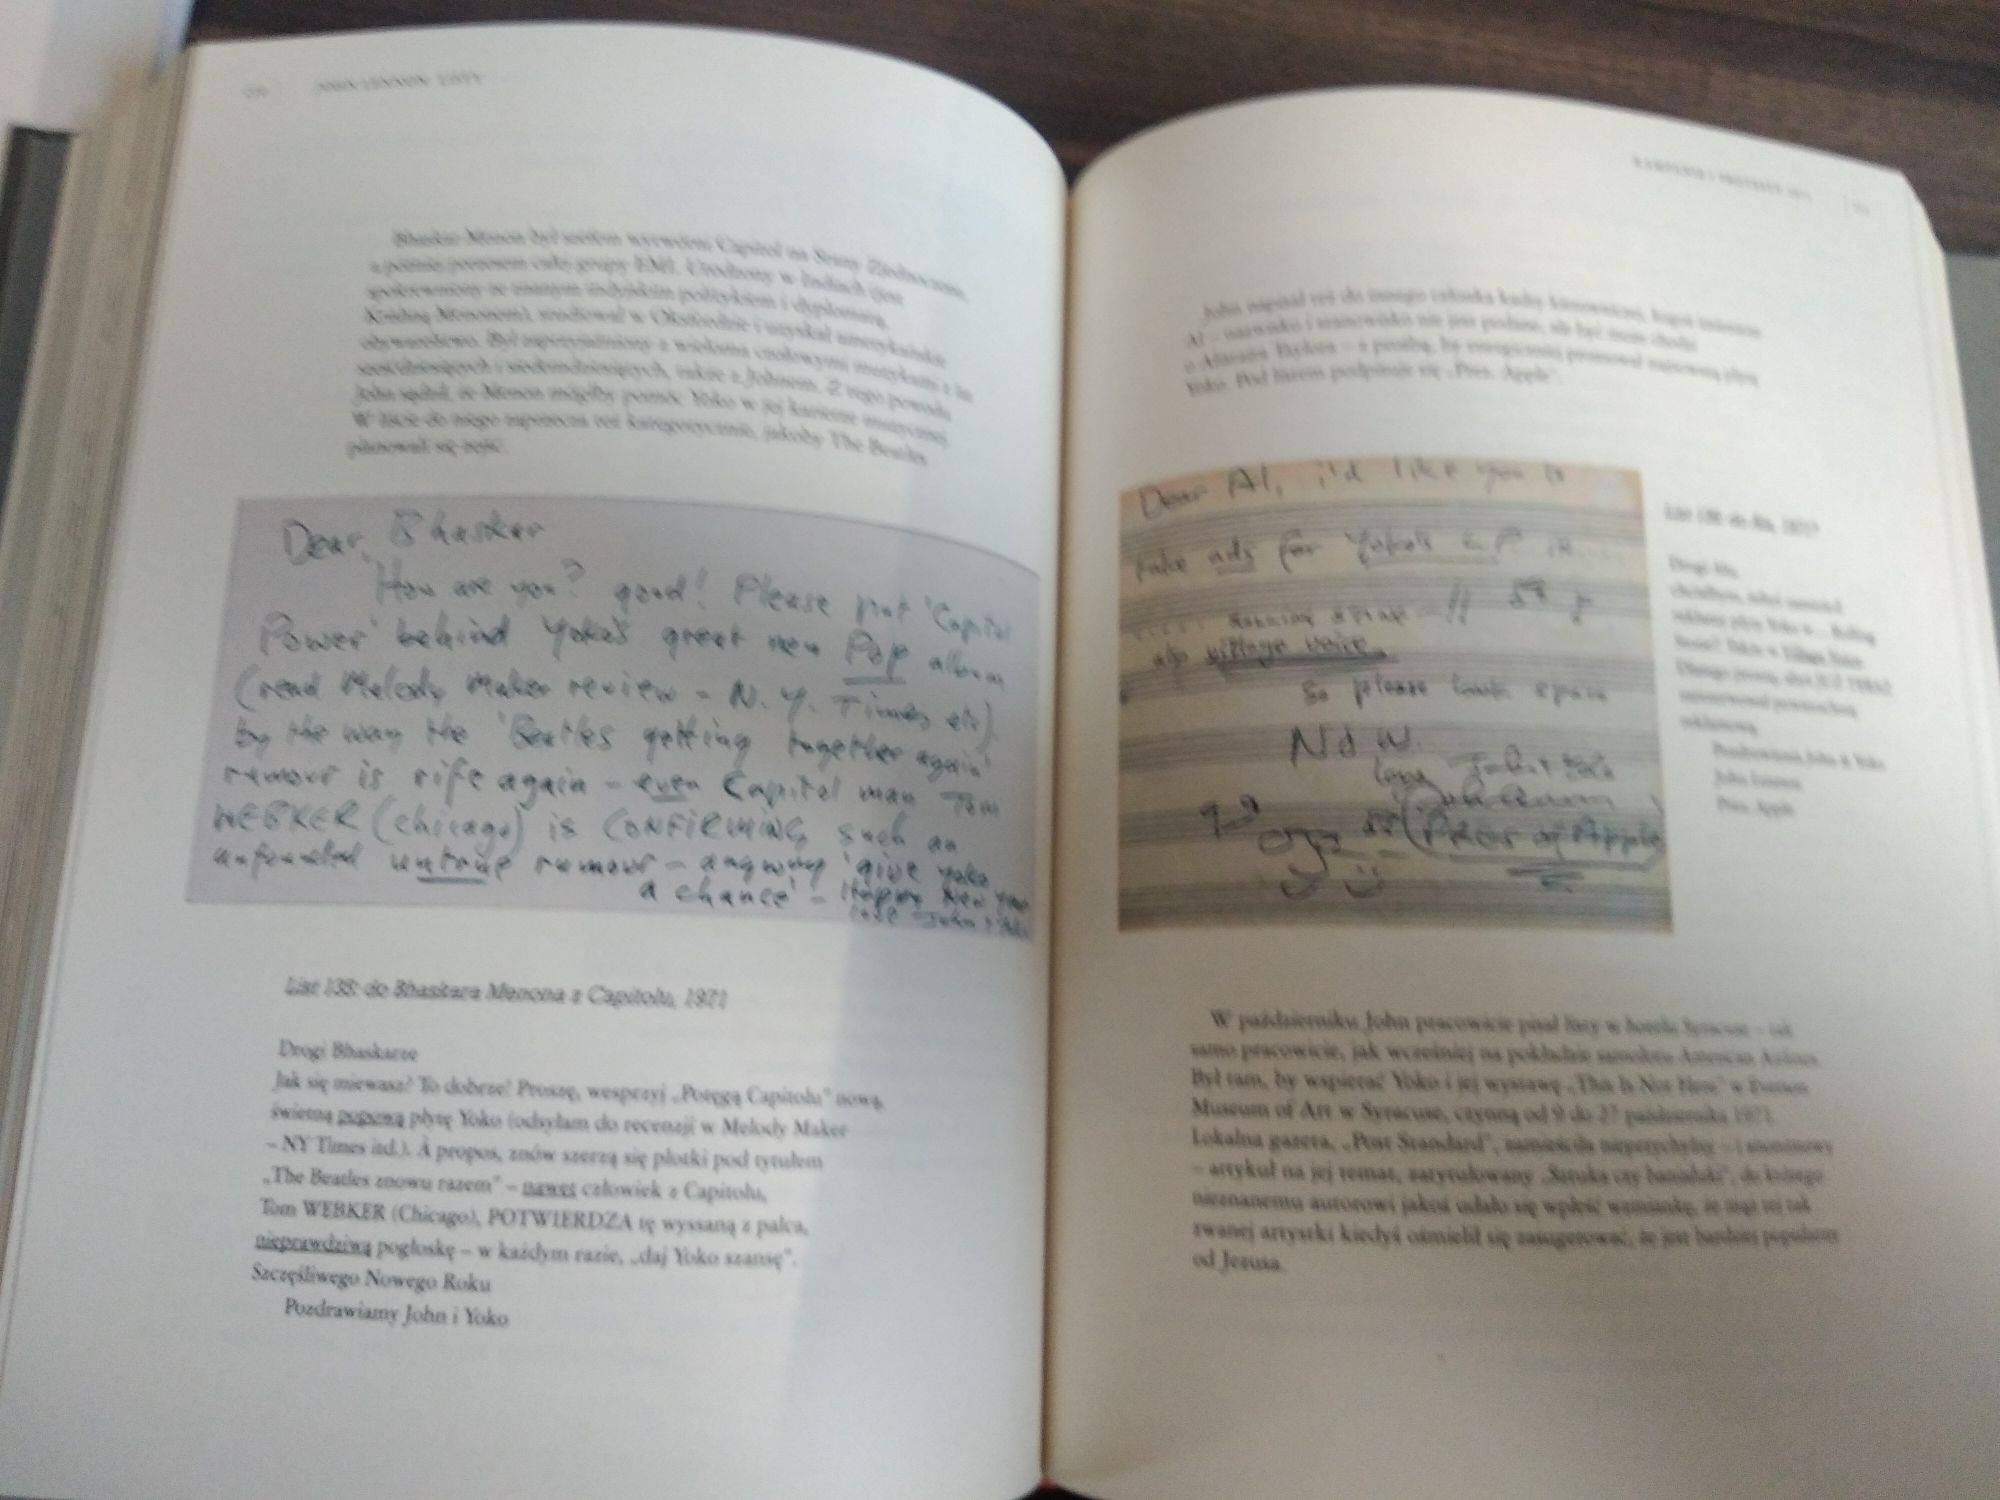 JOHN LENNON LISTY
Bhaskar Menon był szefem wytwórni Capitol na Stany Zjednoczone,
a później prezesem całej grupy EMI. Urodzony w Indiach (jest
spokrewniony ze znanym indyjskim politykiem i dyplomatą,
Kriszną Menonem), studiował w Oksfordzie i uzyskał amerykańskie
obywatelstwo. Był zaprzyjaźniony z wieloma czołowymi muzykami z lat
sześćdziesiątych i siedemdziesiątych, także z Johnem. Z tego powodu
John sądził, że Menon mógłby pomóc Yoko w jej karierze muzycznej.
W liście do niego zaprzecza też kategorycznie, jakoby The Beatles
planowali się zejść.
Dear, Bhaskar
How are you? good! Please put 'Capitol
Power' behind Yoko's great new Pop album
(read Melody Maker review - N.Y. Times etc).
by the way the 'Beatles getting together again'
rumour is rife again - even Capitol man Tom
WEBKER (chicago) is CONFIRMING such an
unfounded untrue rumour - anyway 'give Yoko
a chance' - Happy New Year
love John + Yoko
List 138: do Bhaskara Menona z Capitolu, 1971
Drogi Bhaskarze
Jak się miewasz? To dobrze! Proszę, wesprzyj „Potęgą Capitolu" nową,
świetną popową płytę Yoko (odsyłam do recenzji w Melody Maker
– NY Times itd.). À propos, znów szerzą się plotki pod tytułem
„The Beatles znowu razem" – nawet człowiek z Capitolu,
Tom WEBKER (Chicago), POTWIERDZA tę wyssaną z palca,
nieprawdziwą pogłoskę – w każdym razie, „daj Yoko szansę".
Szczęśliwego Nowego Roku
Pozdrawiamy John i Yoko
John napisał też do innego członka kadry kierowniczej, kogoś imieniem
Al – nazwisko i stanowisko nie jest podane, ale być może chodzi
o Taylora – z prośbą, by energiczniej promował najnowszą płytę
Yoko. Pod listem podpisuje się „Prez. Apple".
Dear Al, i'd like you to
take ads for Yoko's LP in....
...... Rolling Stone -!!
also village voice.
so please book space
Love John + Yoko
(John Lennon)
(Prez of Apple)
List 139: do Ala, 1971?
Drogi Alu,
chciałbym, żebyś zamieścił
reklamy płyty Yoko w... Rolling
Stone!! Także w Village Voice
Pozdrowienia John & Yoko
John Lennon
Prez. Apple
W październiku John pracowicie pisał listy w hotelu Syracuse – tak
samo pracowicie, jak wcześniej na pokładzie samolotu American Airlines.
Był tam, by wspierać Yoko i jej wystawę „This Is Not Here" w Everson
Museum of Art w Syracuse, czynną od 9 do 27 października 1971.
Lokalna gazeta, „Post Standard", zamieściła nieprzychylny – i anonimowy
– artykuł na jej temat, zatytułowany „Sztuka czy banialuki", do którego
nieznanemu autorowi jakoś udało się wpleść wzmiankę, że mąż tej tak
zwanej artystki kiedyś ośmielił się zasugerować, że jest bardziej popularny
od Jezusa.